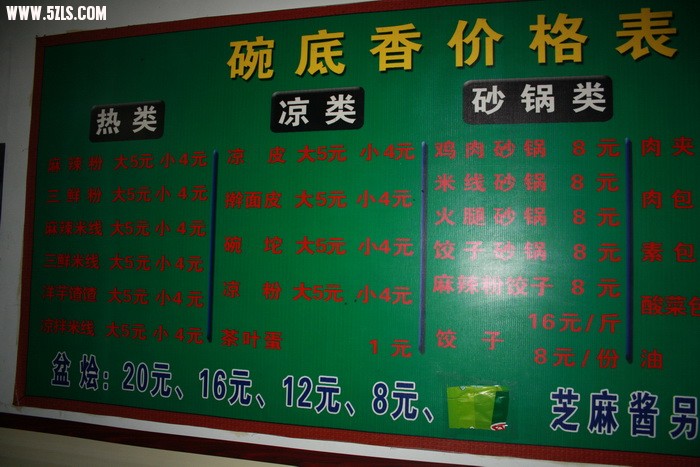 WWW.5ZLS.COM
碗底香价格表
热类
麻辣粉 大5元 小4元
三鲜粉 大5元 小4元
麻辣米线 大5元 小4元
三鲜米线 大5元 小4元
大5元 小4元
米线 大5元 小4元
凉类
凉皮 大5元 小4元
擀面皮 大5元 小4元
碗坨 大5元 小4元
凉粉 大5元 小4元
茶叶蛋 1元
砂锅类
鸡肉砂锅 8元
米线砂锅 8元
火腿砂锅 8元
饺子砂锅 8元
麻辣粉饺子 8元
饺子 16元/斤
8元/份
肉夹
肉包
素包
酸菜包
油
盆烩:20元、16元、12元、8元、
芝麻酱另